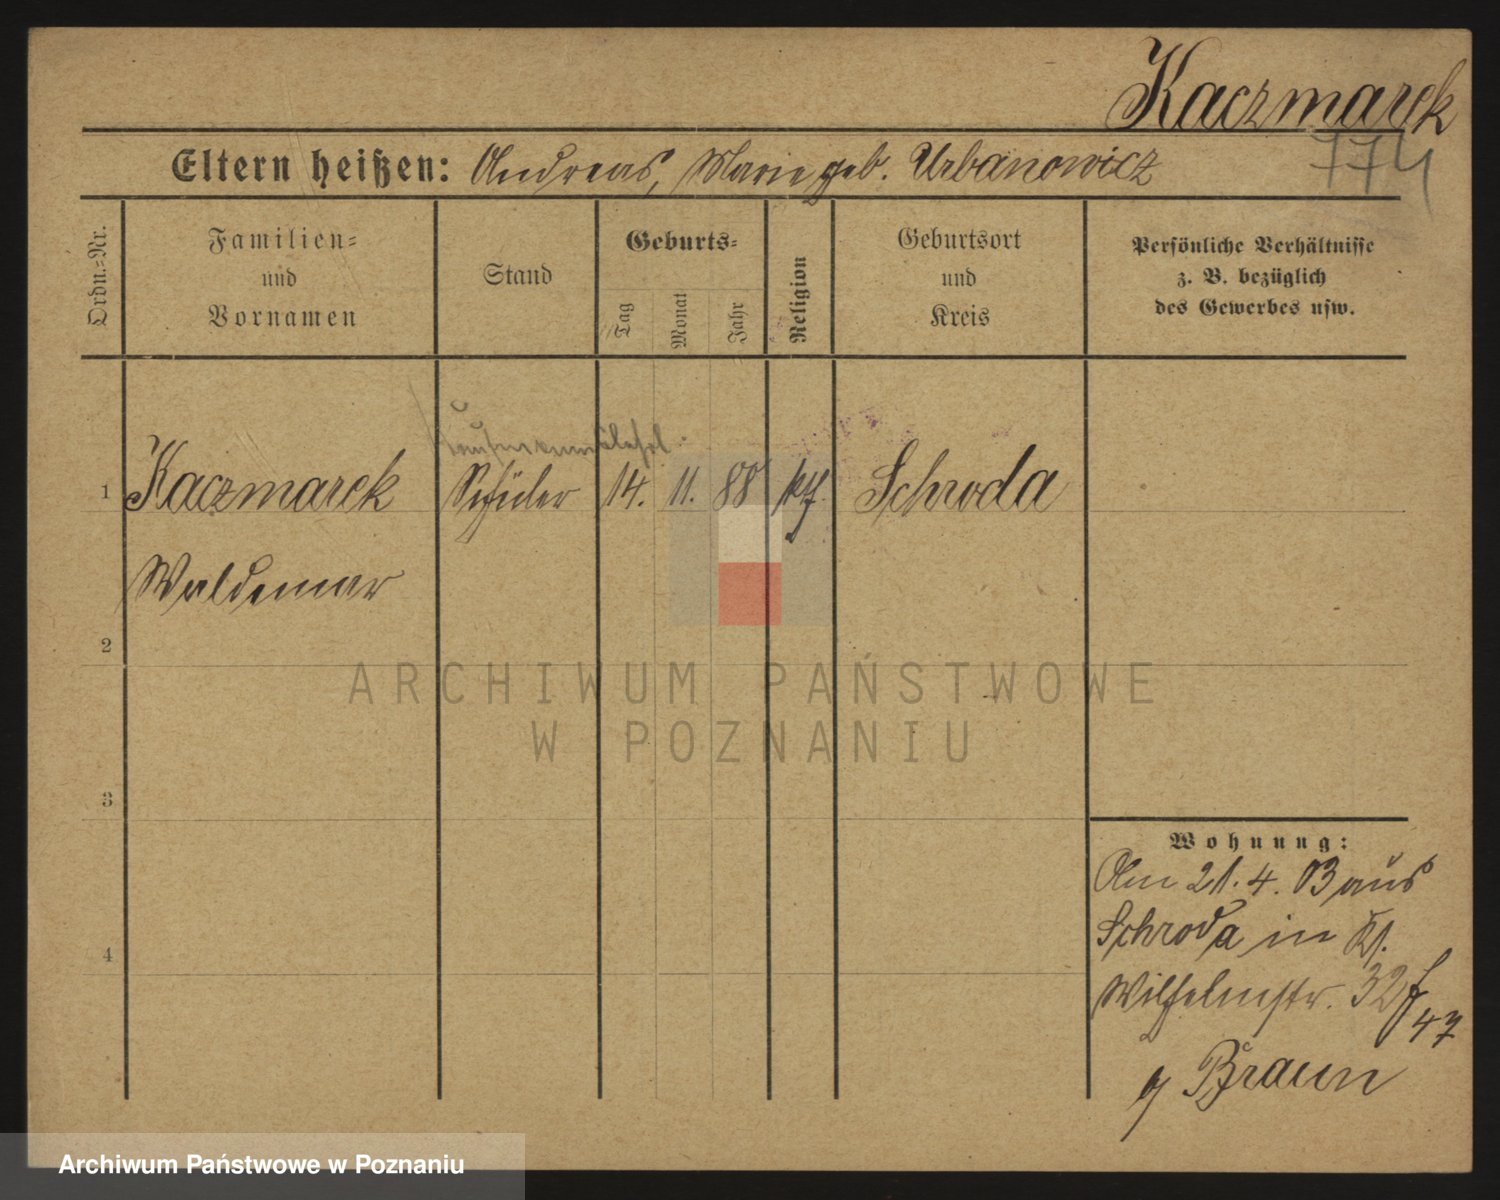 Kaczmarek
774
Eltern heißen: Andreas, Marie geb. Urbanowicz
Ordn.-Nr.
Familien-
und
Vornamen
Stand
Geburts-
Tag
Monat
Jahr
Religion
Geburtsort
und
Kreis
Persönliche Verhältnisse
z. B. bezüglich
des Gewerbes usw.
Kaufmannslehrl.
1 Kaczmarek Schüler 14. 11. 88 kth. Schroda
Waldemar
2
3
4
Wohnung:
Am 21.4.03 aus
Schroda in
Wilhelmstr. 32
47
Braun
ARCHIWUM PAŃSTWOWE
W POZNANIU
Archiwum Państwowe w Poznaniu